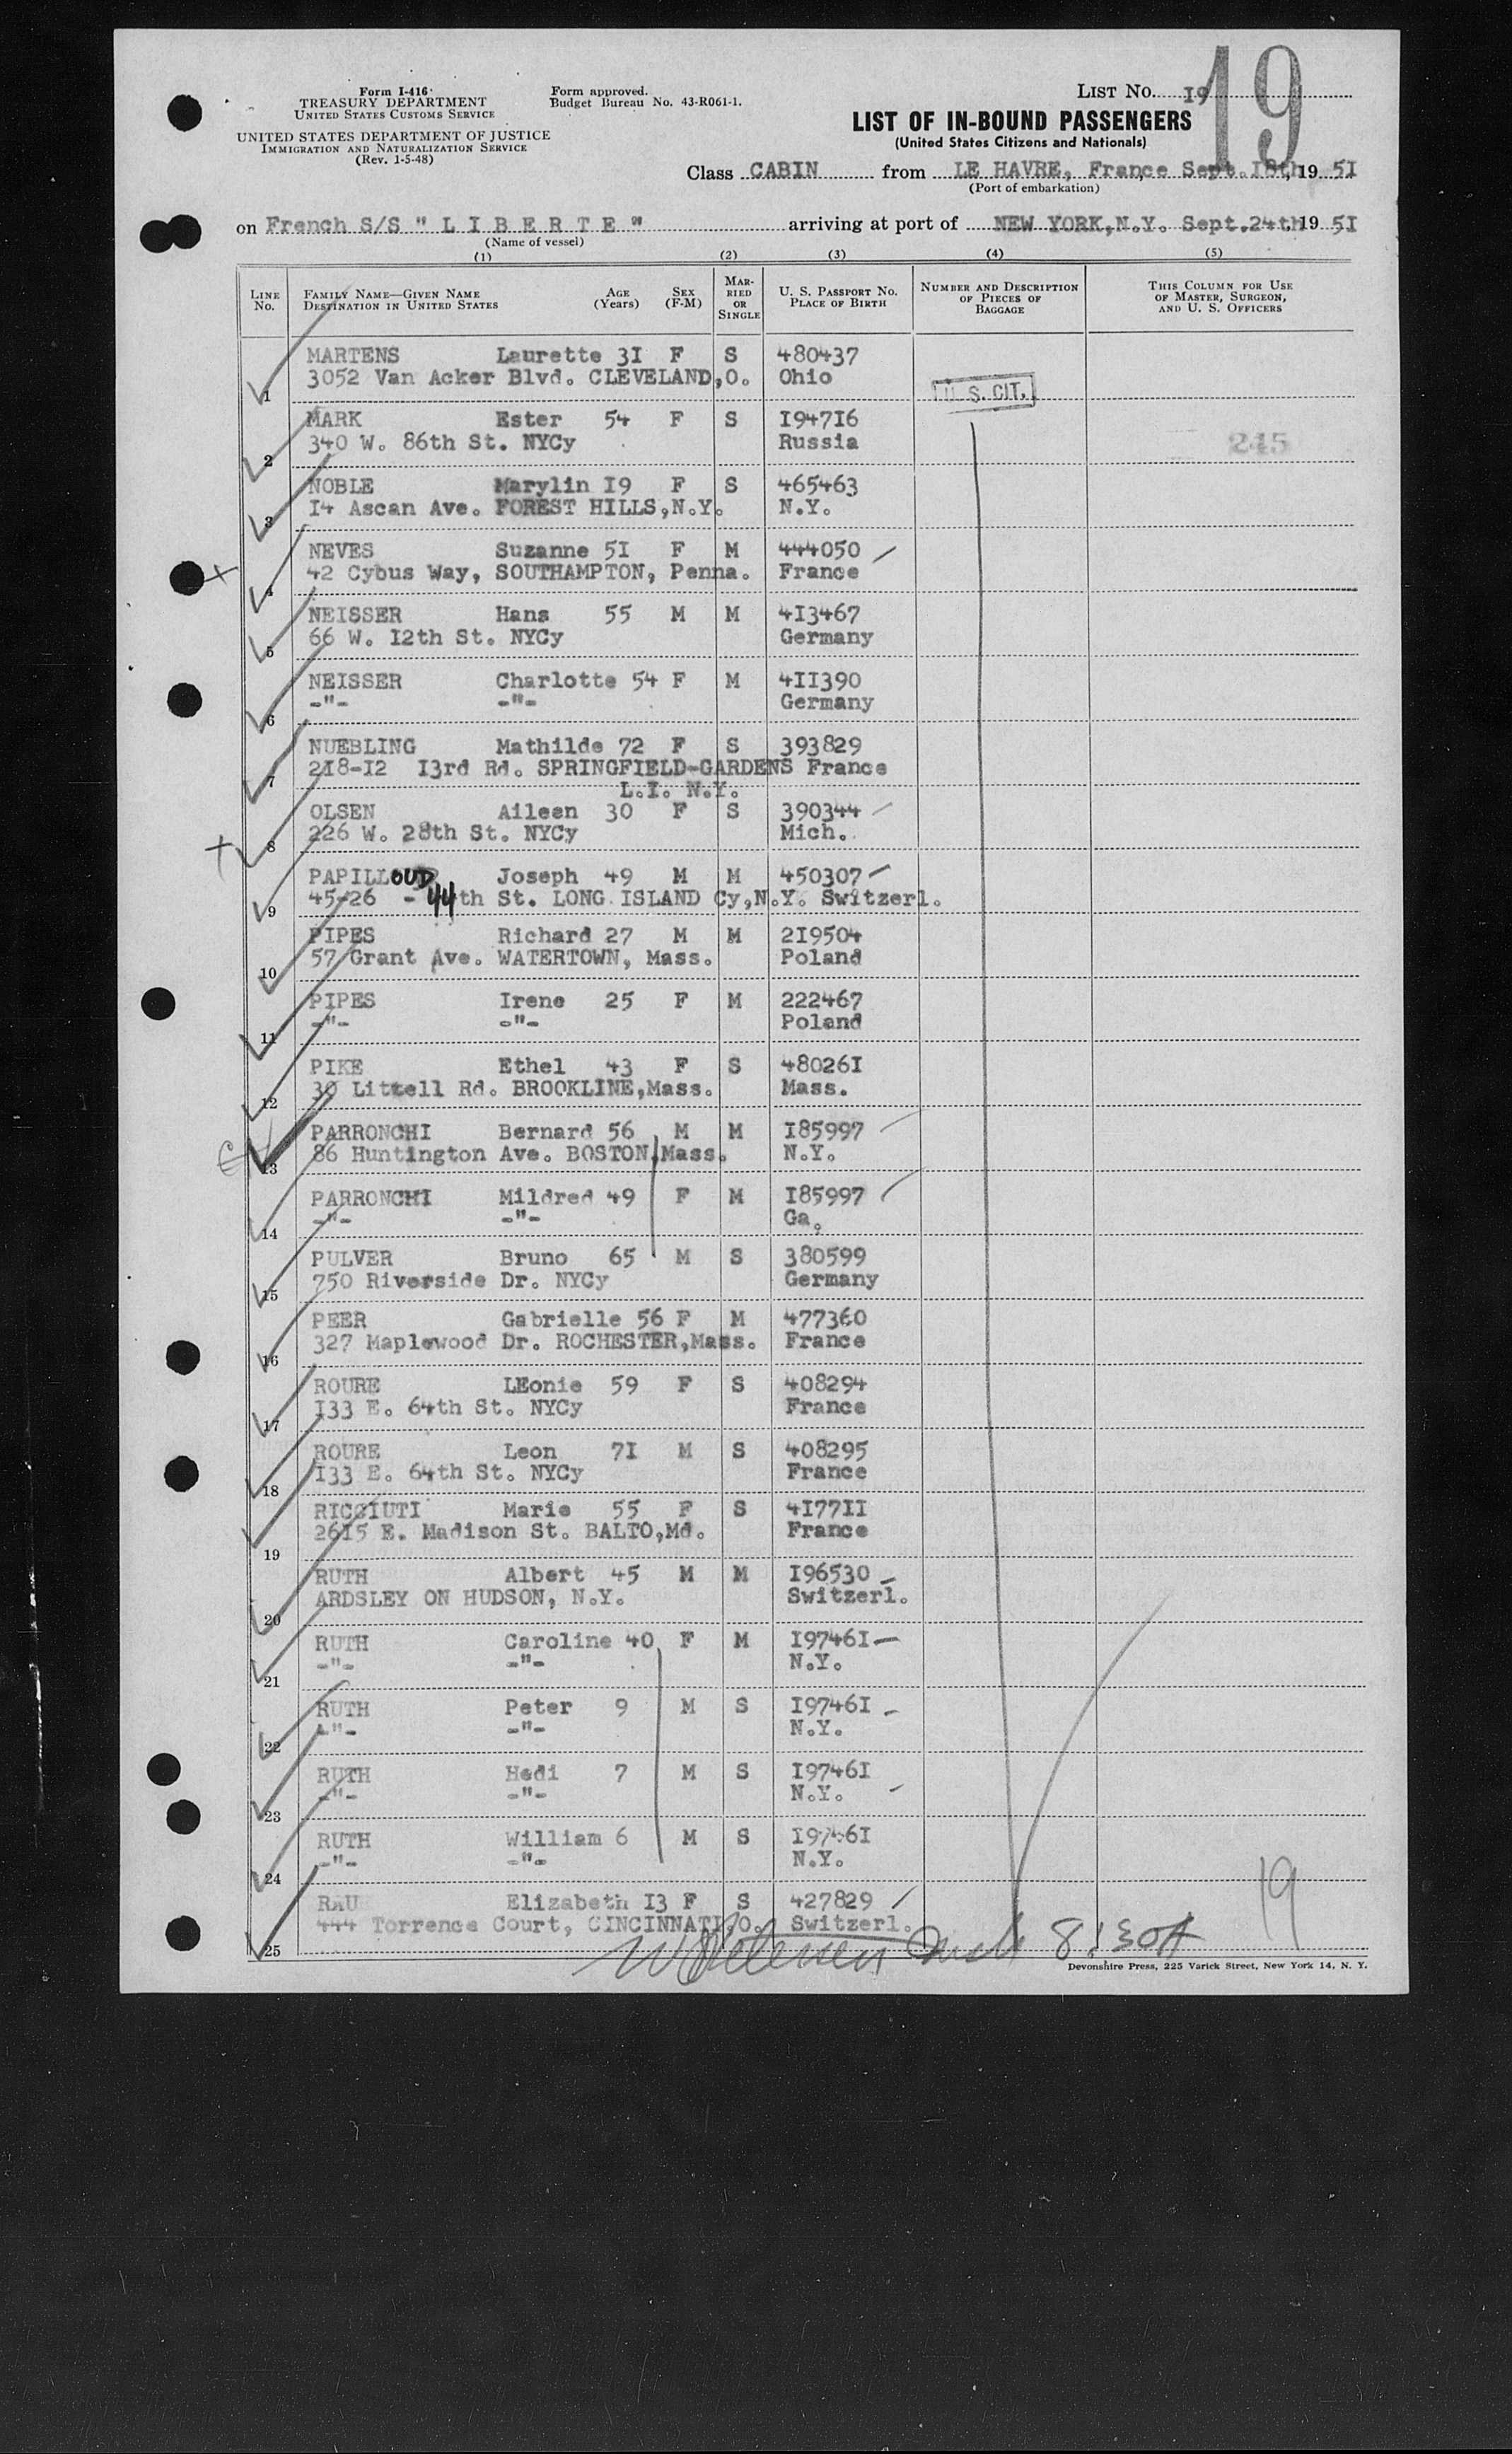 Form I-416
TREASURY DEPARTMENT
UNITED STATES CUSTOMS SERVICE
UNITED STATES DEPARTMENT OF JUSTICE
IMMIGRATION AND NATURALIZATION SERVICE
(Rev. 1-5-48)
Form approved.
Budget Bureau No. 43-R061-1.
LIST NO. I9
19
LIST OF IN-BOUND PASSENGERS
(United States Citizens and Nationals)
Class CABIN from LE HAVRE, France Sept. I8th, 19 5I
(Port of embarkation)
on French S/S " L I B E R T E " arriving at port of NEW YORK,N.Y. Sept.24th 19 5I
(Name of vessel)
(1) (2) (3) (4) (5)
LINE No. FAMILY NAME—GIVEN NAME DESTINATION IN UNITED STATES AGE (Years) SEX (F-M) MARRIED OR SINGLE U. S. PASSPORT NO. PLACE OF BIRTH NUMBER AND DESCRIPTION OF PIECES OF BAGGAGE THIS COLUMN FOR USE OF MASTER, SURGEON, AND U. S. OFFICERS
MARTENS Laurette 3I F S 480437
1 3052 Van Acker Blvd. CLEVELAND,O. Ohio
U. S. CIT.
MARK Ester 54 F S I947I6
2 340 W. 86th St. NYCy Russia 245
NOBLE Marylin I9 F S 465463
3 I4 Ascan Ave. FOREST HILLS,N.Y. N.Y.
NEVES Suzanne 5I F M 444050
4 42 Cybus Way, SOUTHAMPTON, Penna. France
NEISSER Hans 55 M M 4I3467
5 66 W. I2th St. NYCy Germany
NEISSER Charlotte 54 F M 4II390
6 -"- -"- Germany
NUEBLING Mathilde 72 F S 393829
7 2I8-I2 I3rd Rd. SPRINGFIELD-GARDENS France
L.I. N.Y.
OLSEN Aileen 30 F S 390344
8 226 W. 28th St. NYCy Mich.
PAPILLOUD Joseph 49 M M 450307
9 45-26 - 44th St. LONG ISLAND Cy,N.Y. Switzerl.
PIPES Richard 27 M M 2I9504
10 57 Grant Ave. WATERTOWN, Mass. Poland
PIPES Irene 25 F M 222467
11 -"- -"- Poland
PIKE Ethel 43 F S 48026I
12 30 Littell Rd. BROOKLINE,Mass. Mass.
PARRONCHI Bernard 56 M M I85997
13 86 Huntington Ave. BOSTON,Mass. N.Y.
PARRONCHI Mildred 49 F M I85997
14 -"- -"- Ga.
PULVER Bruno 65 M S 380599
15 750 Riverside Dr. NYCy Germany
PEER Gabrielle 56 F M 477360
16 327 Maplewood Dr. ROCHESTER,Mass. France
ROURE LEonie 59 F S 408294
17 I33 E. 64th St. NYCy France
ROURE Leon 7I M S 408295
18 I33 E. 64th St. NYCy France
RICCIUTI Marie 55 F S 4I77II
19 26I5 E. Madison St. BALTO,Md. France
RUTH Albert 45 M M I96530
20 ARDSLEY ON HUDSON, N.Y. Switzerl.
RUTH Caroline 40 F M I9746I
21 -"- -"- N.Y.
RUTH Peter 9 M S I9746I
22 -"- -"- N.Y.
RUTH Hedi 7 M S I9746I
23 -"- -"- N.Y.
RUTH William 6 M S I9746I
24 -"- -"- N.Y.
RAU Elizabeth I3 F S 427829
25 444 Torrence Court, CINCINNATI,O. Switzerl.
19
8:30A
Devonshire Press, 225 Varick Street, New York 14, N. Y.